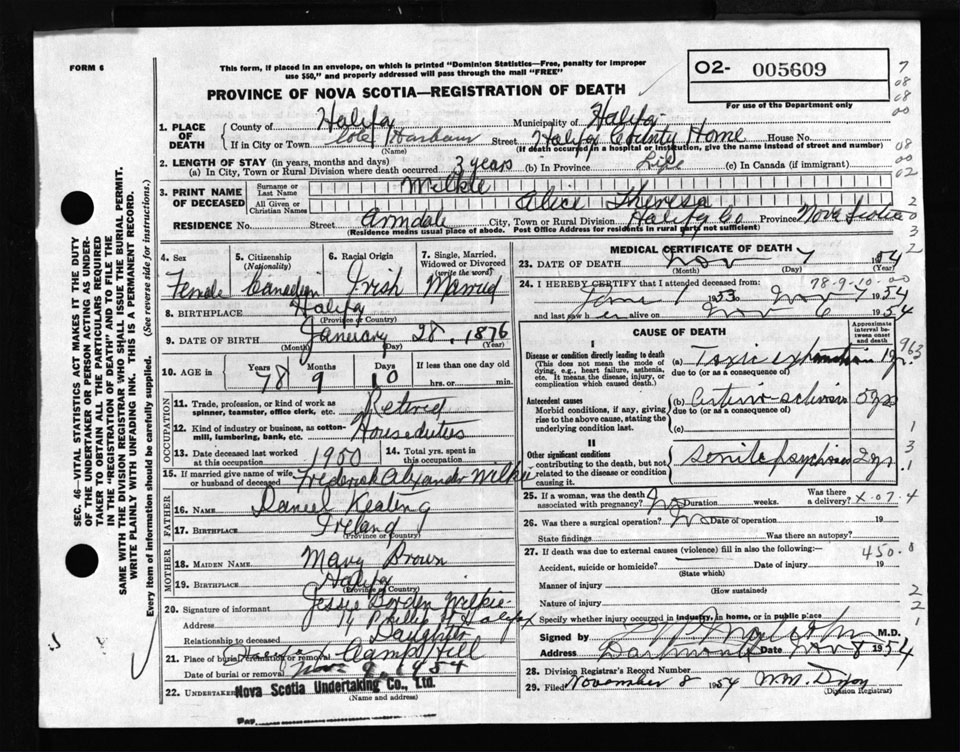 FORM 6
This form, if placed in an envelope, on which is printed "Dominion Statistics—Free, penalty for improper
use $50," and properly addressed will pass through the mail "FREE"
O2- 005609
For use of the Department only
PROVINCE OF NOVA SCOTIA—REGISTRATION OF DEATH
1. PLACE OF DEATH
County of Halifax Municipality of Halifax
If in City or Town Cole Harbour Street Halifax County Home House No.
(Name) (If death occurred in a hospital or institution, give the name instead of street and number)
2. LENGTH OF STAY (in years, months and days)
(a) In City, Town or Rural Division where death occurred 3 years (b) In Province Life (c) In Canada (if immigrant)
3. PRINT NAME OF DECEASED
Surname or Last Name Wilkie
All Given or Christian Names Alice Theresa
RESIDENCE No. Street Armdale City, Town or Rural Division Halifax Co Province Nova Scotia
(Residence means usual place of abode. Post Office Address for residents in rural parts not sufficient)
4. Sex Female
5. Citizenship (Nationality) Canadian
6. Racial Origin Irish
7. Single, Married, Widowed or Divorced (write the word) Married
8. BIRTHPLACE Halifax
(Province or Country)
9. DATE OF BIRTH January 28, 1876
(Month) (Day) (Year)
10. AGE in Years 78 Months 9 Days 10 If less than one day
hrs. or min.
OCCUPATION
11. Trade, profession, or kind of work as
spinner, teamster, office clerk, etc. Retired
12. Kind of industry or business, as cotton-
mill, lumbering, bank, etc. Houseduties
13. Date deceased last worked at this occupation 1950
14. Total yrs. spent in this occupation
15. If married give name of wife
or husband of deceased Frederick Alexander Wilkie
FATHER
16. Name Daniel Keating
17. Birthplace Ireland
(Province or Country)
MOTHER
18. MAIDEN NAME Mary Brown
19. BIRTHPLACE Halifax
(Province or Country)
20. Signature of informant Jessie Borden Wilkie
Address 14 Phillip St Halifax
Relationship to deceased Daughter
21. Place of burial, cremation or removal Camp Hill
Date of burial or removal Nov 9, 1954
22. UNDERTAKER Nova Scotia Undertaking Co., Ltd.
(Name and address)
MEDICAL CERTIFICATE OF DEATH
23. DATE OF DEATH Nov 7 1954
(Month) (Day) (Year)
78-9-10-00
24. I HEREBY CERTIFY that I attended deceased from:
June 1 1953 to Nov 7 1954
and last saw her alive on Nov 6 1954
CAUSE OF DEATH
Approximate interval between onset and death
I
Disease or condition directly leading to death
(This does not mean the mode of
dying, e.g., heart failure, asthenia,
etc. It means the disease, injury, or
complication which caused death.)
(a) Toxic
due to (or as a consequence of)
Antecedent causes
Morbid conditions, if any, giving
rise to the above cause, stating the
underlying condition last.
(b) 5 yrs
due to (or as a consequence of)
(c)
II
Other significant conditions
contributing to the death, but not
related to the disease or condition
causing it.
Senile psychosis 2 yr
25. If a woman, was the death associated with pregnancy? No Duration weeks. Was there a delivery? X-07-4
26. Was there a surgical operation? No Date of operation 19
State findings Was there an autopsy?
27. If death was due to external causes (violence) fill in also the following:— 450.0
Accident, suicide or homicide? Date of injury 19
(State which)
Manner of injury
(How sustained)
Nature of injury
Specify whether injury occurred in industry, in home, or in public place
Signed by M.D.
Dartmouth Date Nov 8 1954
28. Division Registrar's Record Number
29. Filed November 8 1954 Wm. Dixon
(Division Registrar)
SEC. 46—VITAL STATISTICS ACT MAKES IT THE DUTY
OF THE UNDERTAKER OR PERSON ACTING AS UNDER-
TAKER TO OBTAIN ALL THE PARTICULARS REQUIRED
IN THE "REGISTRATION OF DEATH" AND TO FILE THE
SAME WITH THE DIVISION REGISTRAR WHO SHALL ISSUE THE BURIAL PERMIT.
WRITE PLAINLY WITH UNFADING INK. THIS IS A PERMANENT RECORD.
Every item of information should be carefully supplied. (See reverse side for instructions.)